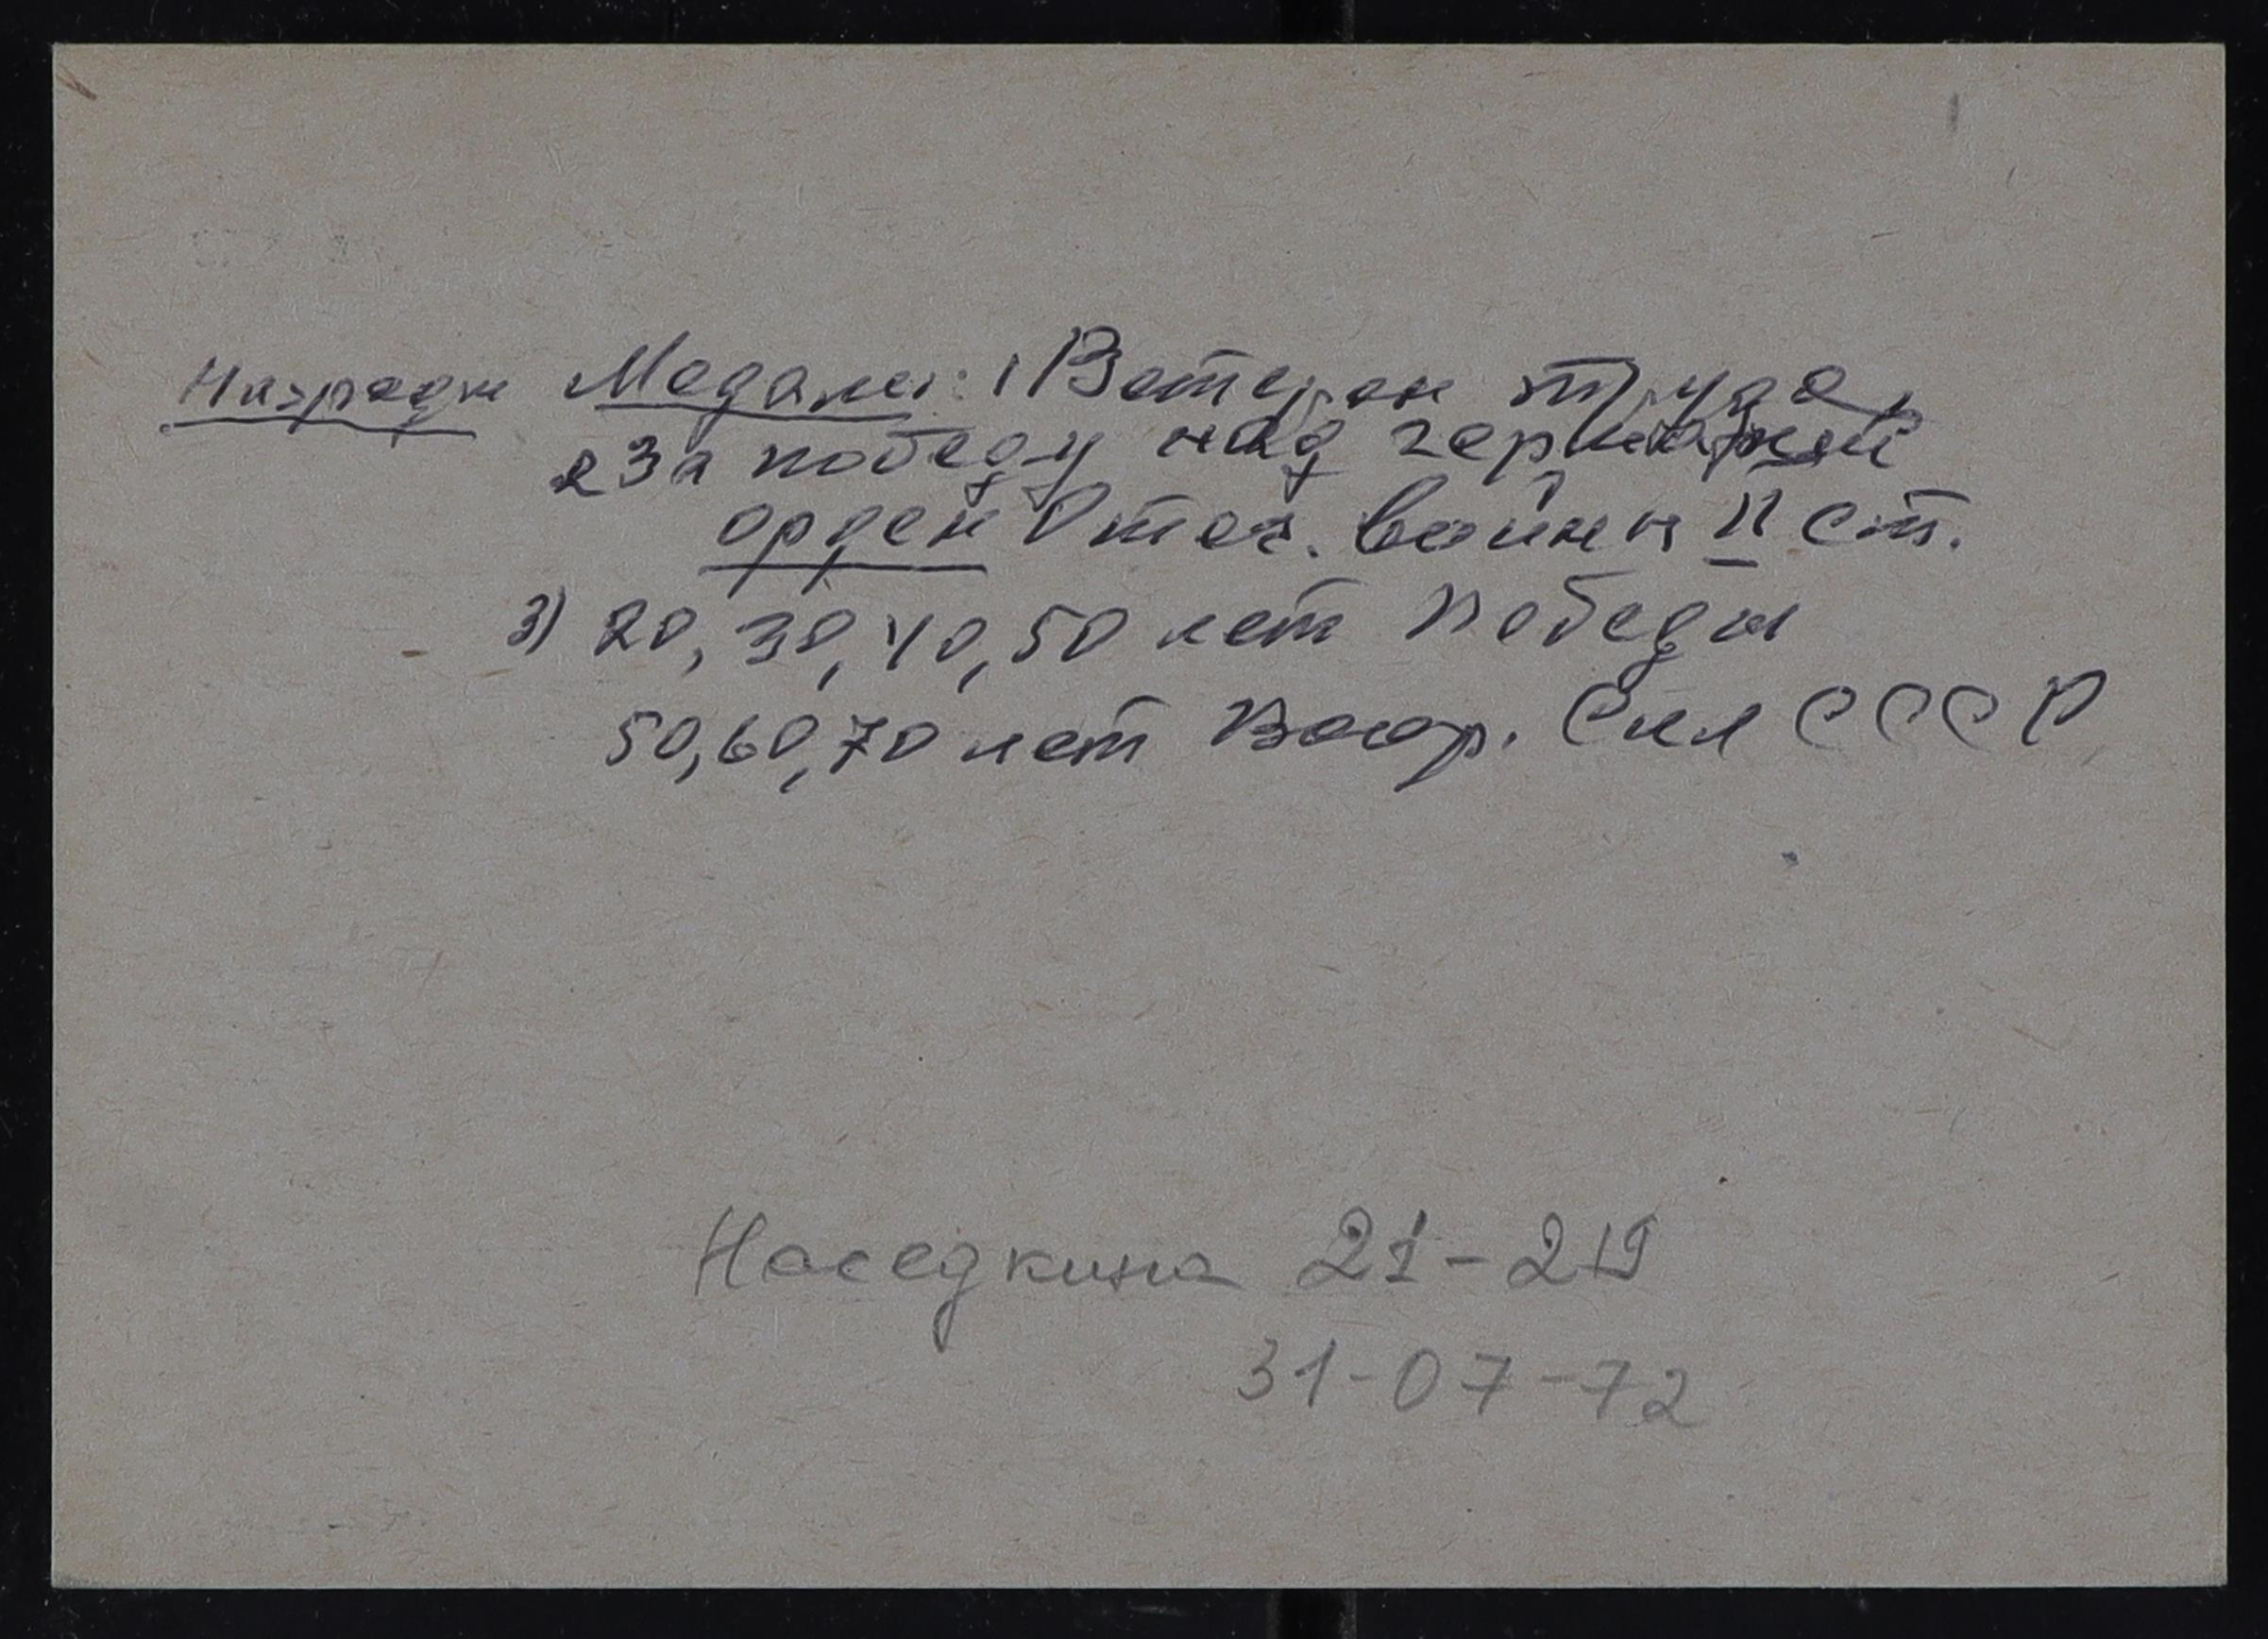 Награды Медали: 1 Ветеран труда,
2 За победу над германией
орден Отеч. войны II ст.
3) 20, 30, 40, 50 лет Победы
50, 60, 70 лет Воор. Сил СССР
Наседкина 21-219
31-07-72